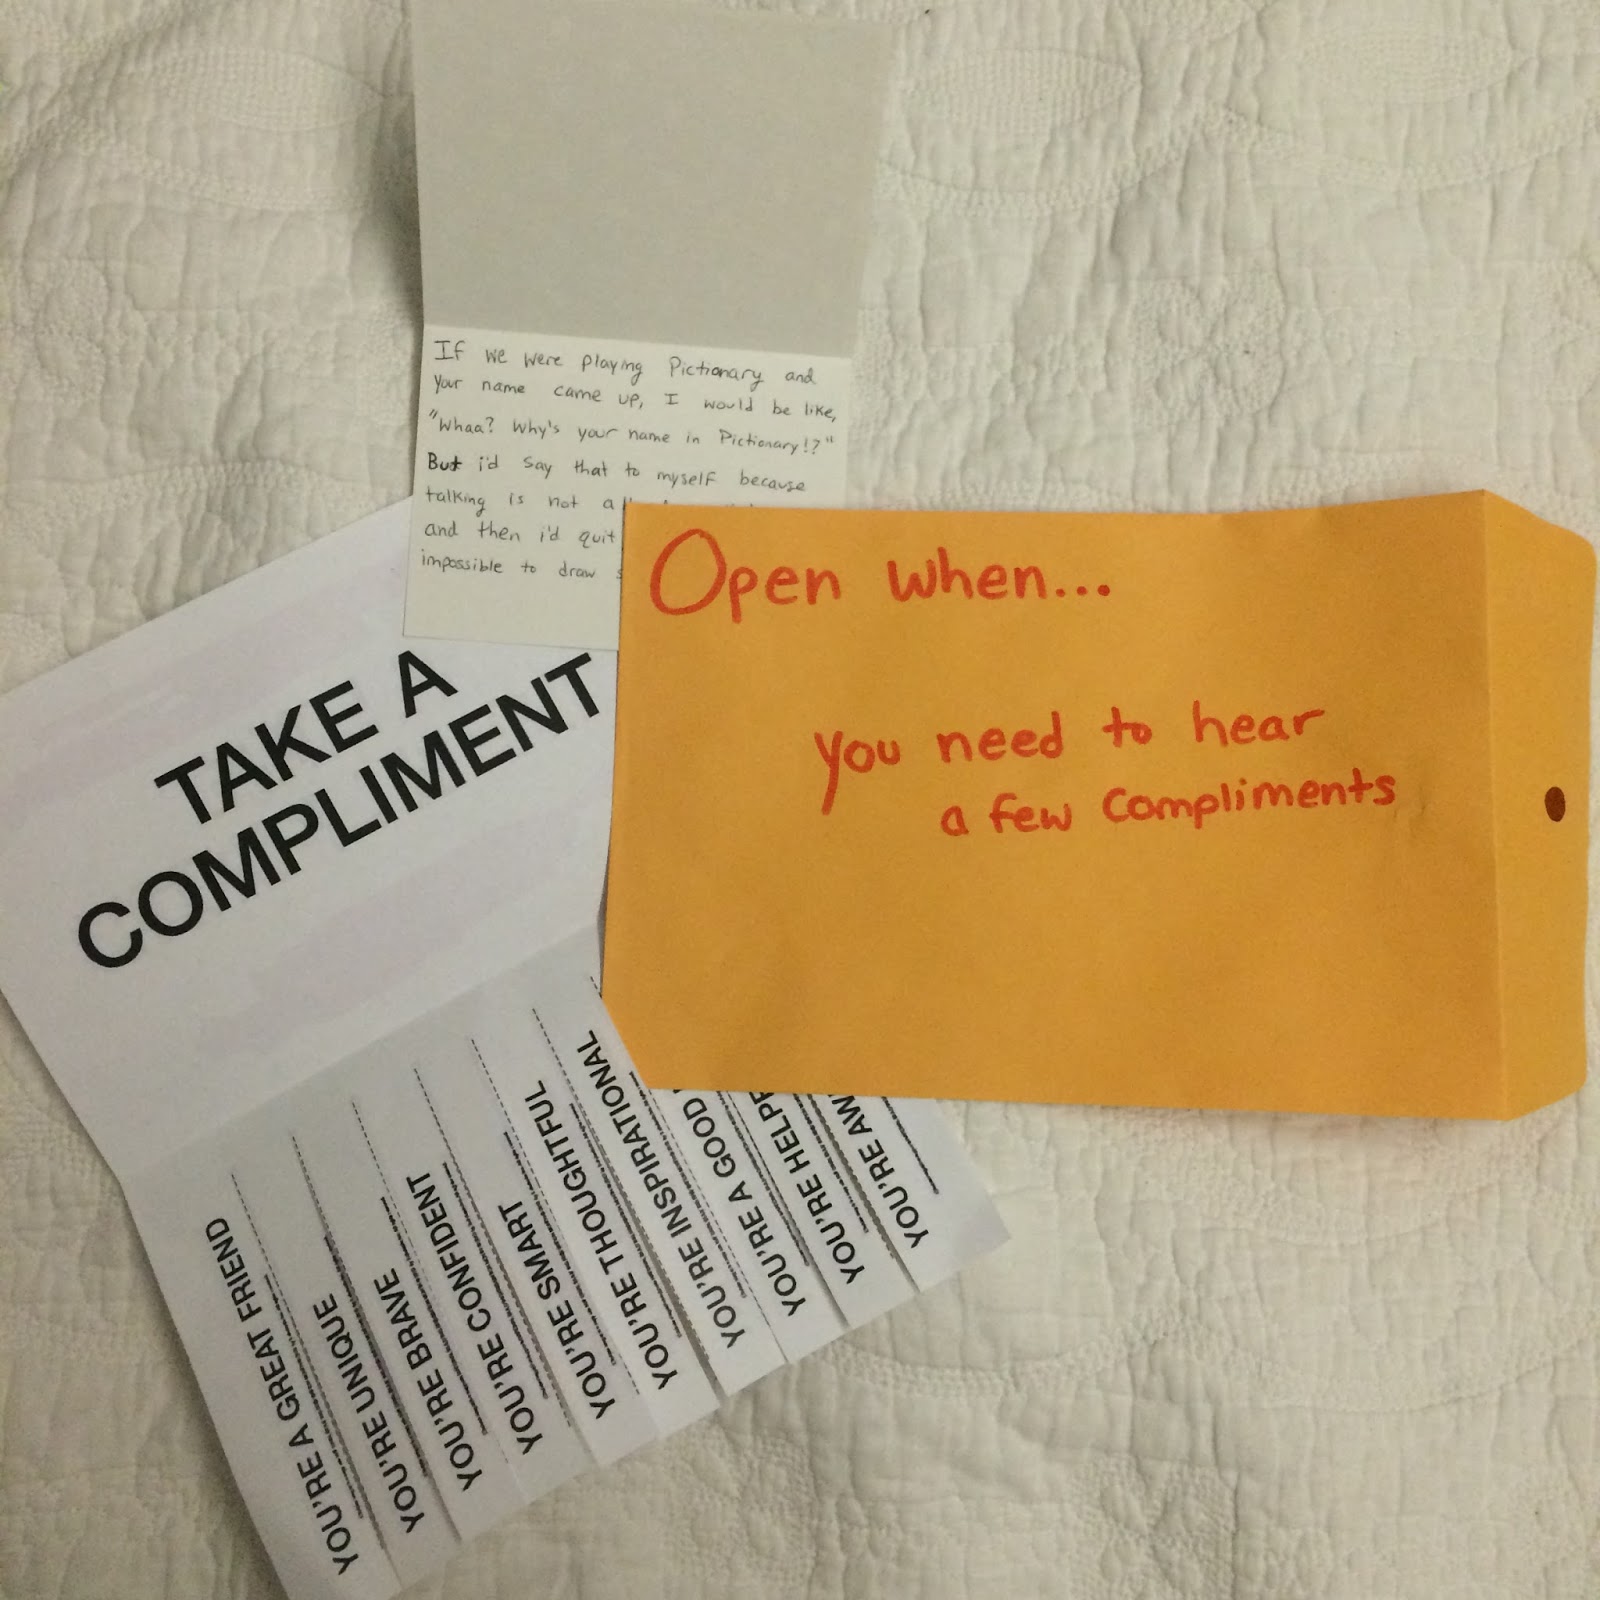 If we were playing Pictionary and
your name came up, I would be like,
"Whaa? Why's your name in Pictionary!?"
But i'd say that to myself because
talking is not
and then i'd quit
impossible to draw
Open when...
you need to hear
a few compliments
TAKE A
COMPLIMENT
YOU'RE A GREAT FRIEND
YOU'RE UNIQUE
YOU'RE BRAVE
YOU'RE CONFIDENT
YOU'RE SMART
YOU'RE THOUGHTFUL
YOU'RE INSPIRATIONAL
YOU'RE A GOOD
YOU'RE
YOU'RE